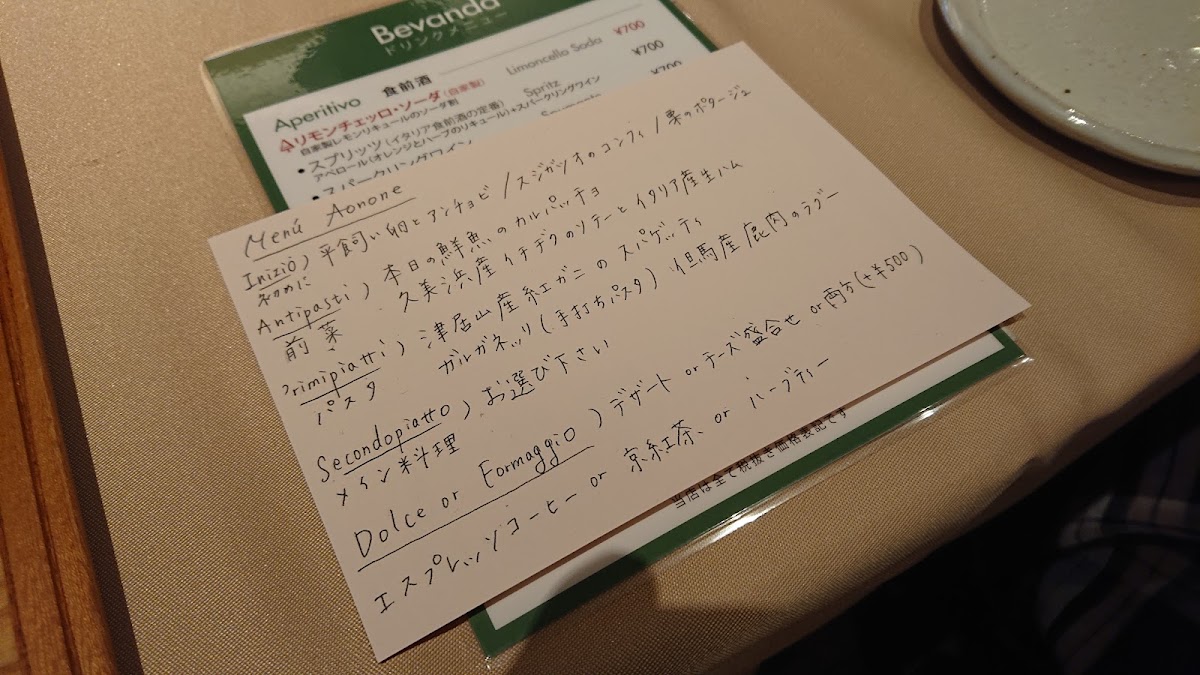 Bevanda
ドリンクメニュー
Aperitivo 食前酒
リモンチェッロ・ソーダ(自家製) Limoncello Soda ¥700
自家製レモンリキュールのソーダ割
・スプリッツ(イタリア食前酒の定番) Spritz ¥700
アペロール(オレンジとハーブのリキュール)+スパークリングワイン
・スパークリングワイン ¥700
Menú Aonone
Inizio) 平飼い卵とアンチョビ/スジガツオのコンフィ/栗のポタージュ
初めに
Antipasti) 本日の鮮魚のカルパッチョ
前菜 久美浜産イチヂクのソテーとイタリア産生ハム
Primipiatti) 津居山産紅ガニのスパゲッティ
パスタ ガルガネッリ(手打ちパスタ)但馬産鹿肉のラグー
Secondopiatto) お選び下さい
メイン料理
Dolce or Formaggio) デザート or チーズ盛合せ or 両方(+¥500)
エスプレッソコーヒー or 京紅茶、or ハーブティー
当店は全て税抜き価格表記です